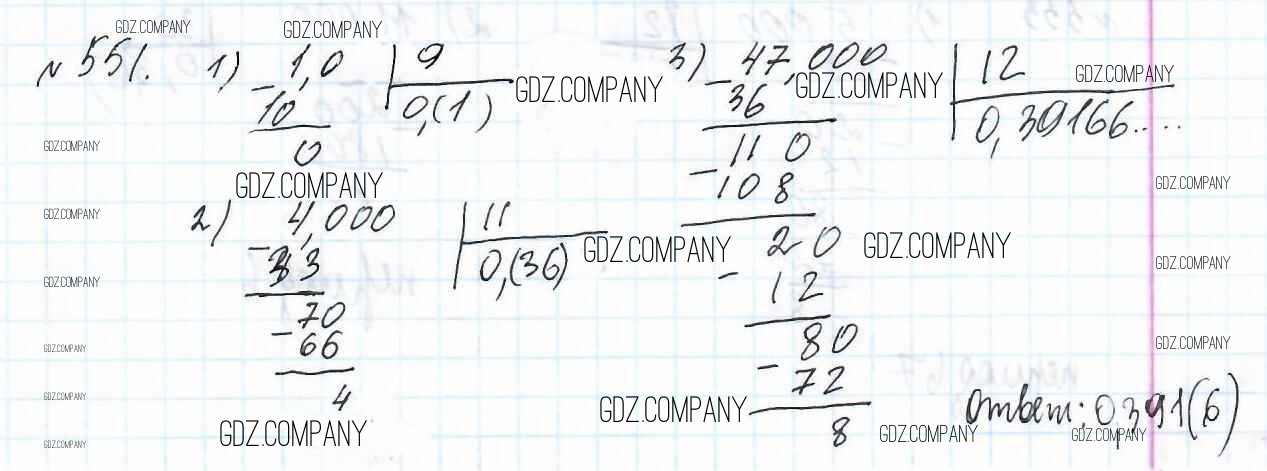 GDZ.COMPANY GDZ.COMPANY
№ 551. 1) 1,0 | 9
- 10 0,(1)
0
GDZ.COMPANY
GDZ.COMPANY
GDZ.COMPANY
2) 4,000 | 11
GDZ.COMPANY
- 33 0,(36)
GDZ.COMPANY
GDZ.COMPANY
70
- 66
GDZ.COMPANY
4
GDZ.COMPANY
GDZ.COMPANY
GDZ.COMPANY
3) 47,000 | 12
GDZ.COMPANY GDZ.COMPANY
- 36 0,39166.....
110
- 108
GDZ.COMPANY
20
GDZ.COMPANY
GDZ.COMPANY
- 12
80
GDZ.COMPANY
- 72
GDZ.COMPANY
8
Ответ: 0,391(6)
GDZ.COMPANY GDZ.COMPANY